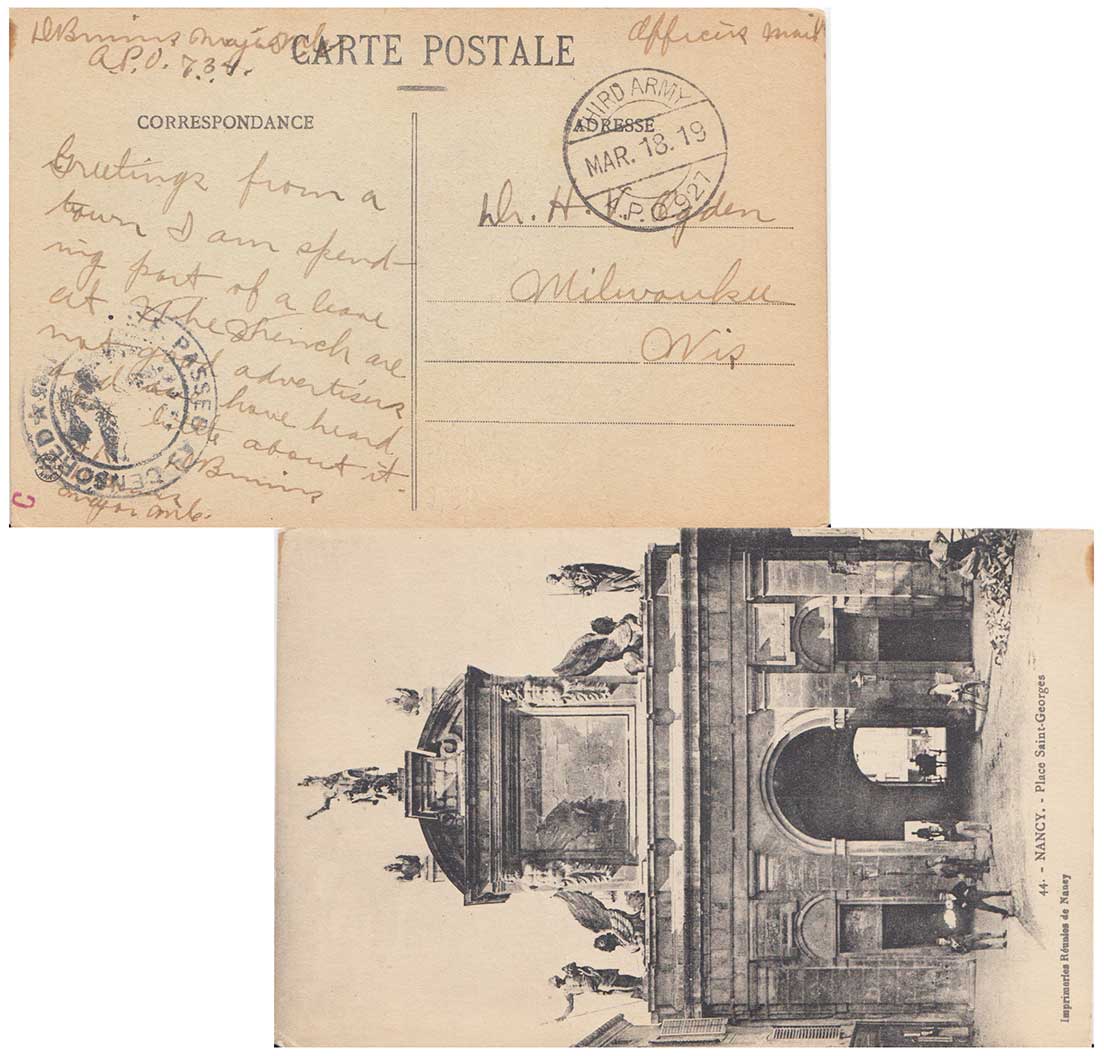 Major
Officers Mail
A.P.O. 734.
CARTE POSTALE
CORRESPONDANCE
ADRESSE
THIRD ARMY
MAR. 18. 19
A.P.O. 927
Greetings from a
town I am spend-
ing part of a leave
at. The French are
not good advertisers
and have heard
little about it.
Major M.C.
Dr. H. V. Ogden
Milwaukee
Wis
PASSED AS CENSORED
C
44. - NANCY. - Place Saint-Georges
Imprimeries Réunies de Nancy